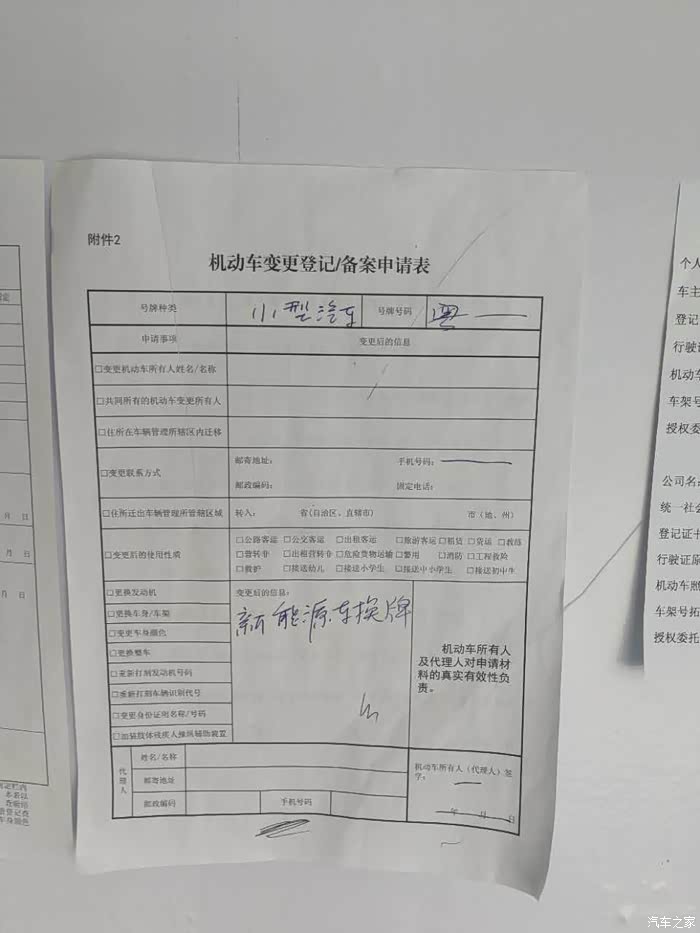 附件2
机动车变更登记/备案申请表
号牌种类 小型汽车 号牌号码 粤
申请事项 变更后的信息
□变更机动车所有人姓名/名称
□共同所有的机动车变更所有人
□住所在车辆管理所辖区内迁移
□变更联系方式
邮寄地址： 手机号码：
邮政编码： 固定电话：
□住所迁出车辆管理所管辖区域 转入： 省(自治区、直辖市) 市（地、州）
□变更后的使用性质
□公路客运 □公交客运 □出租客运 □旅游客运 □租赁 □货运 □教练
□营转非 □出租营转非 □危险货物运输 □警用 □消防 □工程救险
□救护 □接送幼儿 □接送小学生 □接送中小学生 □接送初中生
□更换发动机
□更换车身/车架
□变更车身颜色
□更换整车
□重新打刻发动机号码
□重新打刻车辆识别代号
□变更身份证明名称/号码
□加装肢体残疾人操纵辅助装置
变更后的信息：
新能源车换牌
机动车所有人
及代理人对申请材
料的真实有效性负
责。
代理人
姓名/名称
邮寄地址
邮政编码 手机号码
机动车所有人（代理人）签
字：
年 月 日
个人
车主
登记
行驶证
机动车
车架号
授权委
公司名
统一社会
登记证书
行驶证原
机动车照
车架号拓
授权委托
月 日
月 日
月 日
汽车之家